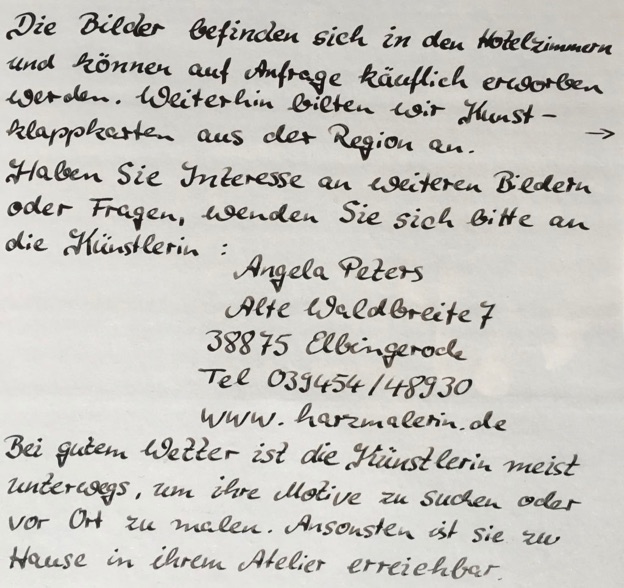 Die Bilder befinden sich in den Hotelzimmern
und können auf Anfrage käuflich erworben
werden. Weiterhin bieten wir Kunst-
klappkarten aus der Region an. →
Haben Sie Interesse an weiteren Bildern
oder Fragen, wenden Sie sich bitte an
die Künstlerin :
Angela Peters
Alte Waldbreite 7
38875 Elbingerode
Tel 039454/48930
www.harzmalerin.de
Bei gutem Wetter ist die Künstlerin meist
unterwegs, um ihre Motive zu suchen oder
vor Ort zu malen. Ansonsten ist sie zu
Hause in ihrem Atelier erreichbar.